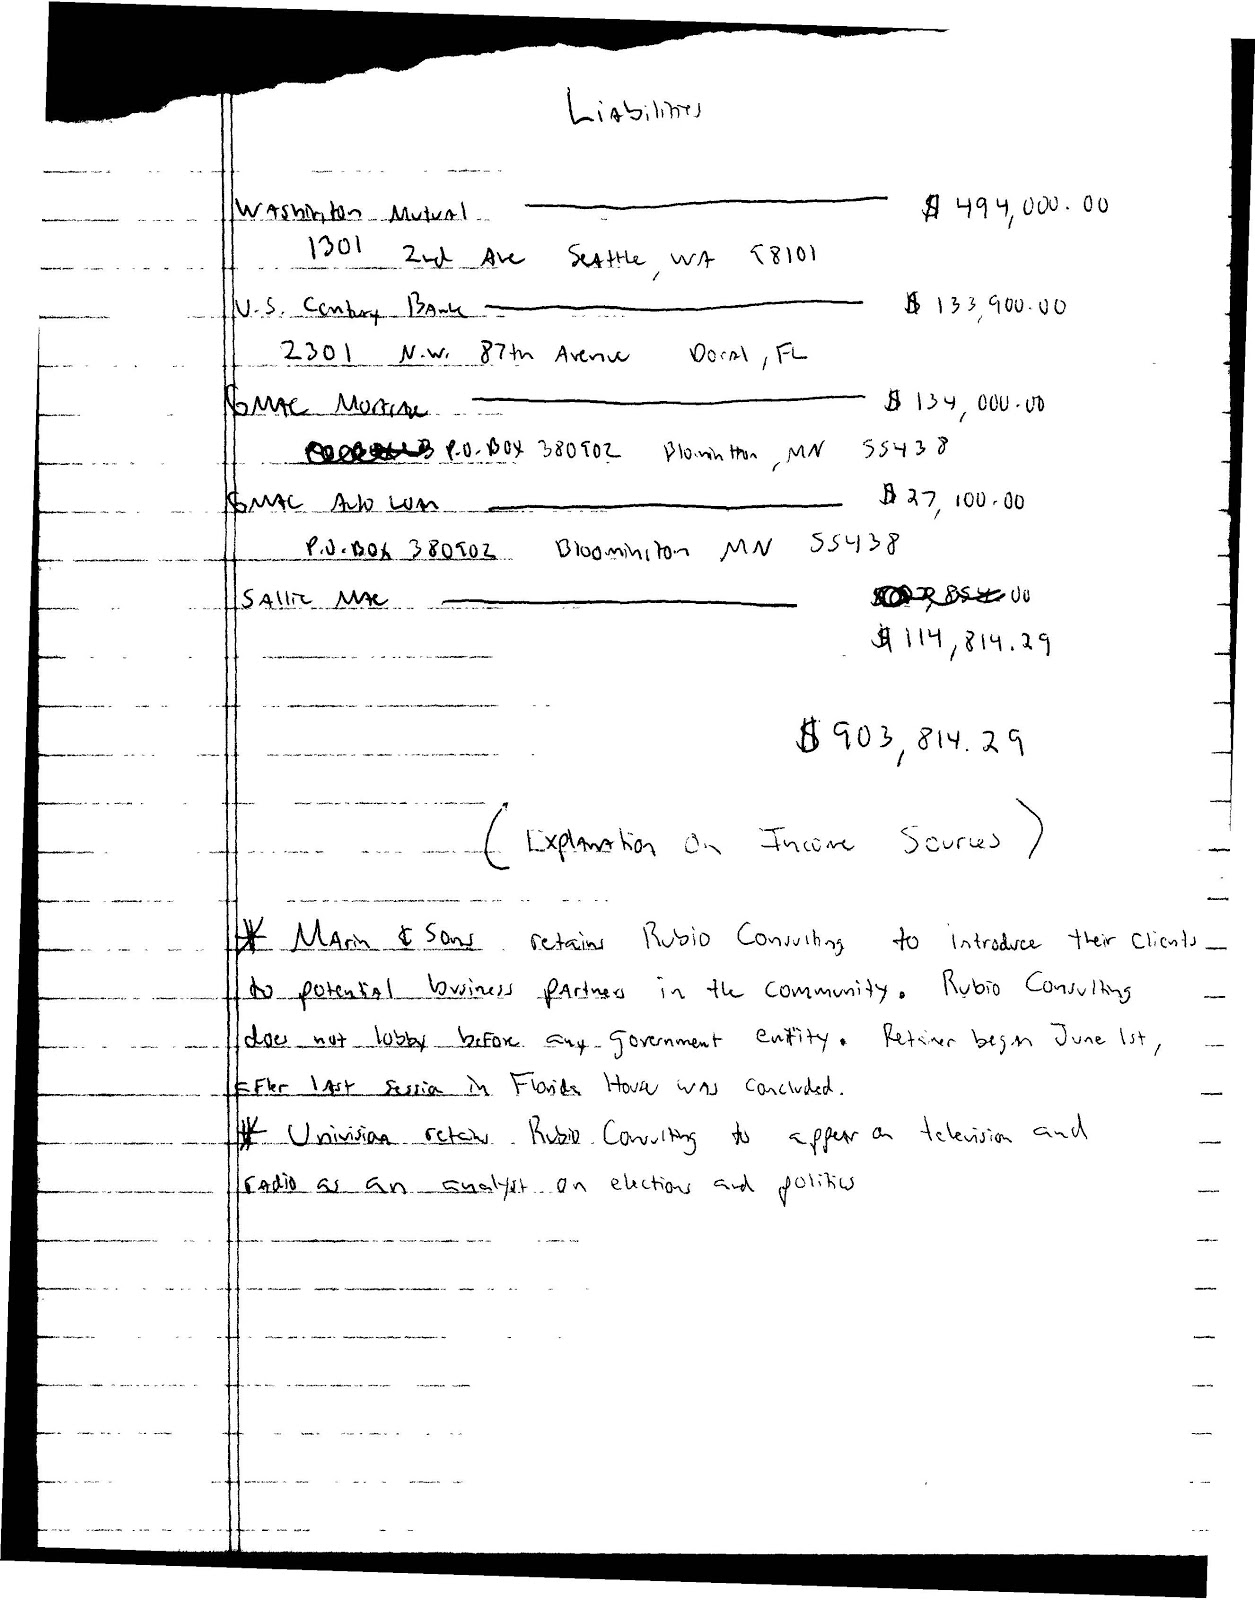 Liabilities
Washington Mutual $494,000.00
1301 2nd Ave Seattle, WA 98101
U.S. Century Bank $133,900.00
2301 N.W. 87th Avenue Doral, FL
GMAC Mortgage $134,000.00
P.O. Box 380902 Bloomington, MN 55438
GMAC Auto Loan $27,100.00
P.O. Box 380902 Bloomington MN 55438
Sallie Mae 00
$114,814.29
$903,814.29
(Explanation on Income Sources)
* Marin & Sons retains Rubio Consulting to introduce their clients
to potential business partners in the community. Rubio Consulting
does not lobby before any government entity. Retainer began June 1st,
after last session in Florida House was concluded.
* Univision retains Rubio Consulting to appear on television and
radio as an analyst on elections and politics